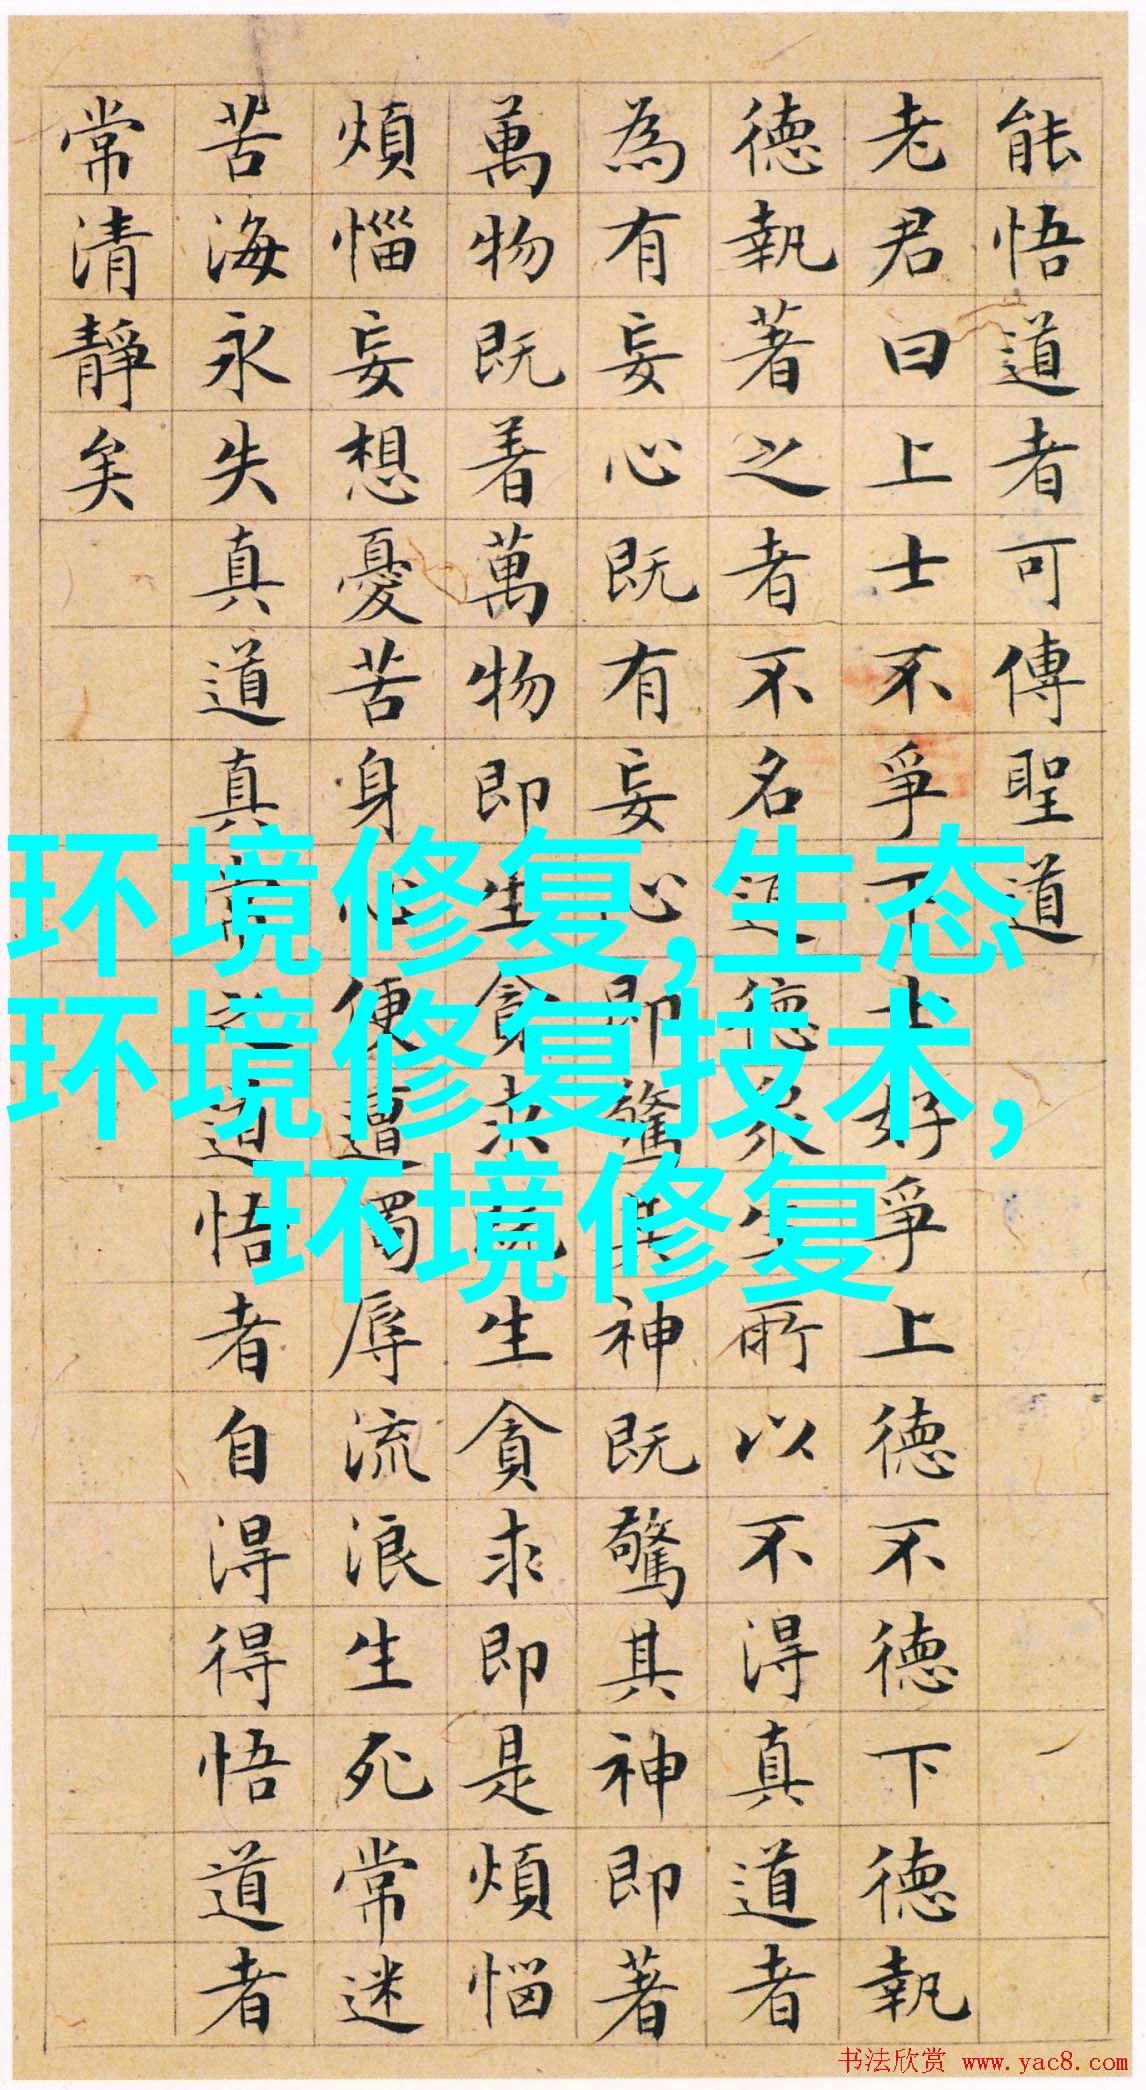 能悟道者可傳聖道
老君曰上士不爭下士好爭上德不德下德執
德執著之者不名道德衆生所以不得真道者
為有妄心既有妄心即驚其神既驚其神即著
萬物既着萬物即生貪求既生貪求即是煩惱
煩惱妄想憂苦身心便遭濁辱流浪生死常迷
苦海永失真道真常之道悟者自得得悟道者
常清靜矣
环境修复,生态
环境修复技术,
环境修复
书法欣赏 www.yac8.com